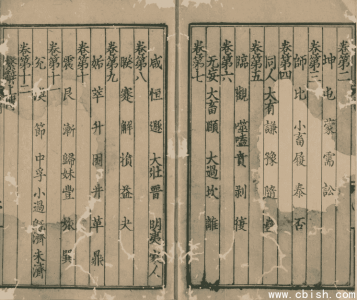 卷第二
坤 屯 蒙 需 訟
卷第三
師 比 小畜 履 泰 否
卷第四
同人 大有 謙 豫 隨
卷第五
臨 觀 噬嗑 賁 剥 復
卷第六
无妄 大畜 頤 大過 坎 離
卷第七
咸 恒 遯 大壯 晉 明夷 家人
卷第八
睽 蹇 解 損 益 夬
卷第九
姤 萃 升 困 井 革 鼎
卷第十
震 艮 漸 歸妹 豐 旅 巽
卷第十一
兌 渙 節 中孚 小過 既濟 未濟
卷第十二
www.cbish.com